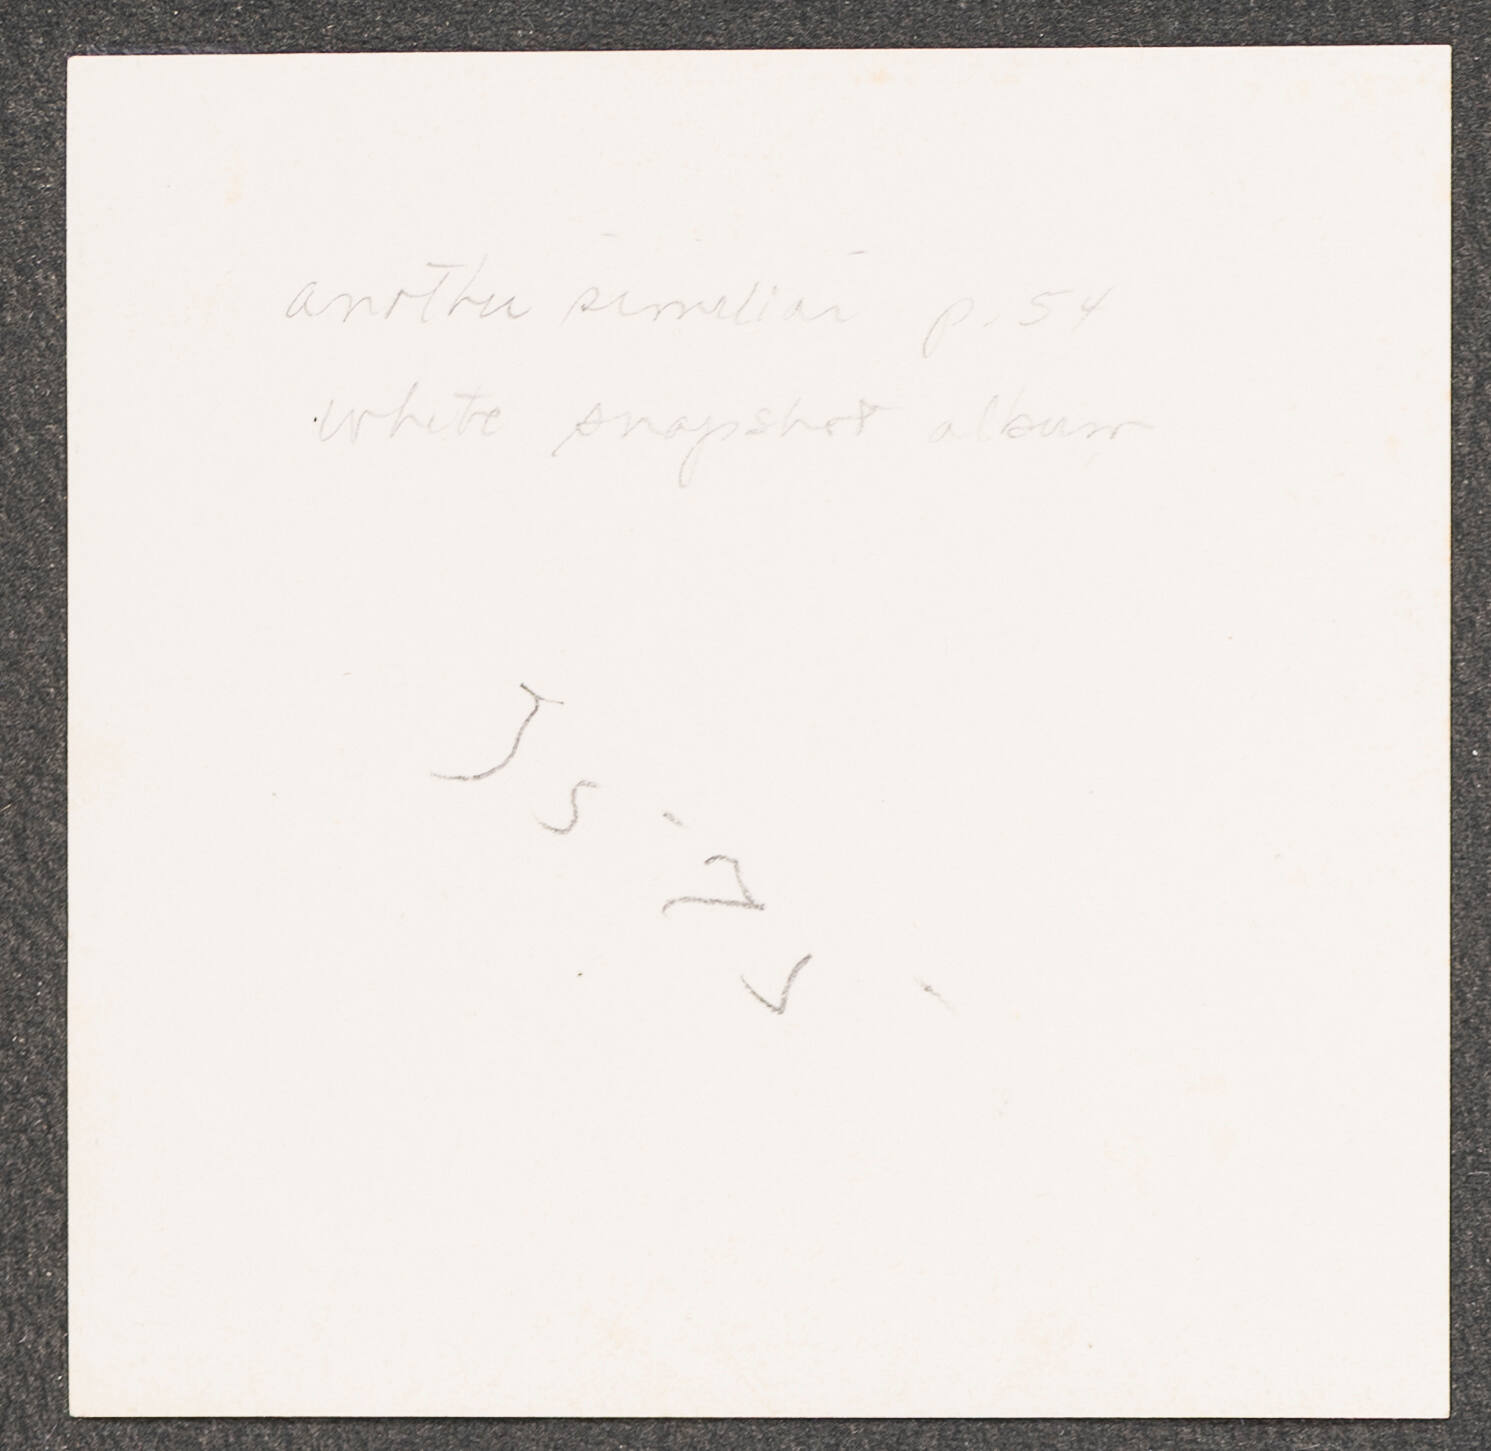 another similiar p. 54
white snapshot album